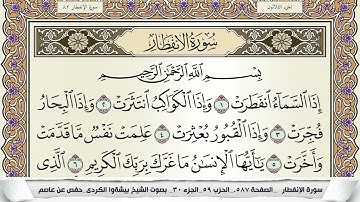 الجزء الثلاثون
سورة الإنفطار ٨٢
سُورَةُ الانفِطَارِ
بِسْمِ ٱللَّهِ ٱلرَّحْمَٰنِ ٱلرَّحِيمِ
إِذَا ٱلسَّمَآءُ ٱنفَطَرَتْ ١ وَإِذَا ٱلْكَوَاكِبُ ٱنتَثَرَتْ ٢ وَإِذَا ٱلْبِحَارُ
فُجِّرَتْ ٣ وَإِذَا ٱلْقُبُورُ بُعْثِرَتْ ٤ عَلِمَتْ نَفْسٌ مَّا قَدَّمَتْ
وَأَخَّرَتْ ٥ يَٰٓأَيُّهَا ٱلْإِنسَٰنُ مَا غَرَّكَ بِرَبِّكَ ٱلْكَرِيمِ ٦ ٱلَّذِى
سورة الإنفطار .. الصفحة ٥٨٧. الحزب ٥٩ .الجزء ٣٠.. بصوت الشيخ بيشه‌وا الكردى حفص عن عاصم